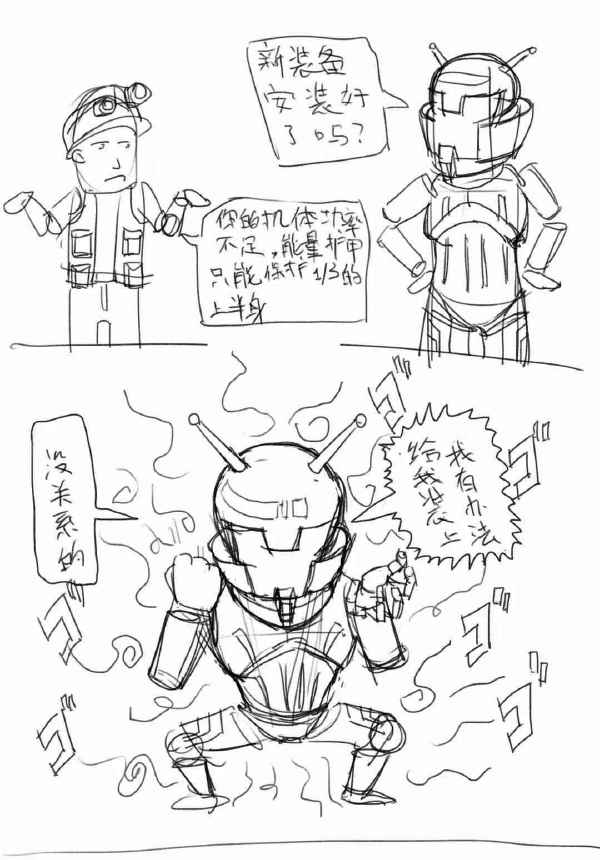 新装备
安装好
了吗?
你的机体功率
不足,能量护甲
只能保护1/3的
上半身
我有办法
给我装上
没关系的
ゴ
ゴ
ゴ
ゴ
ゴ
ゴ